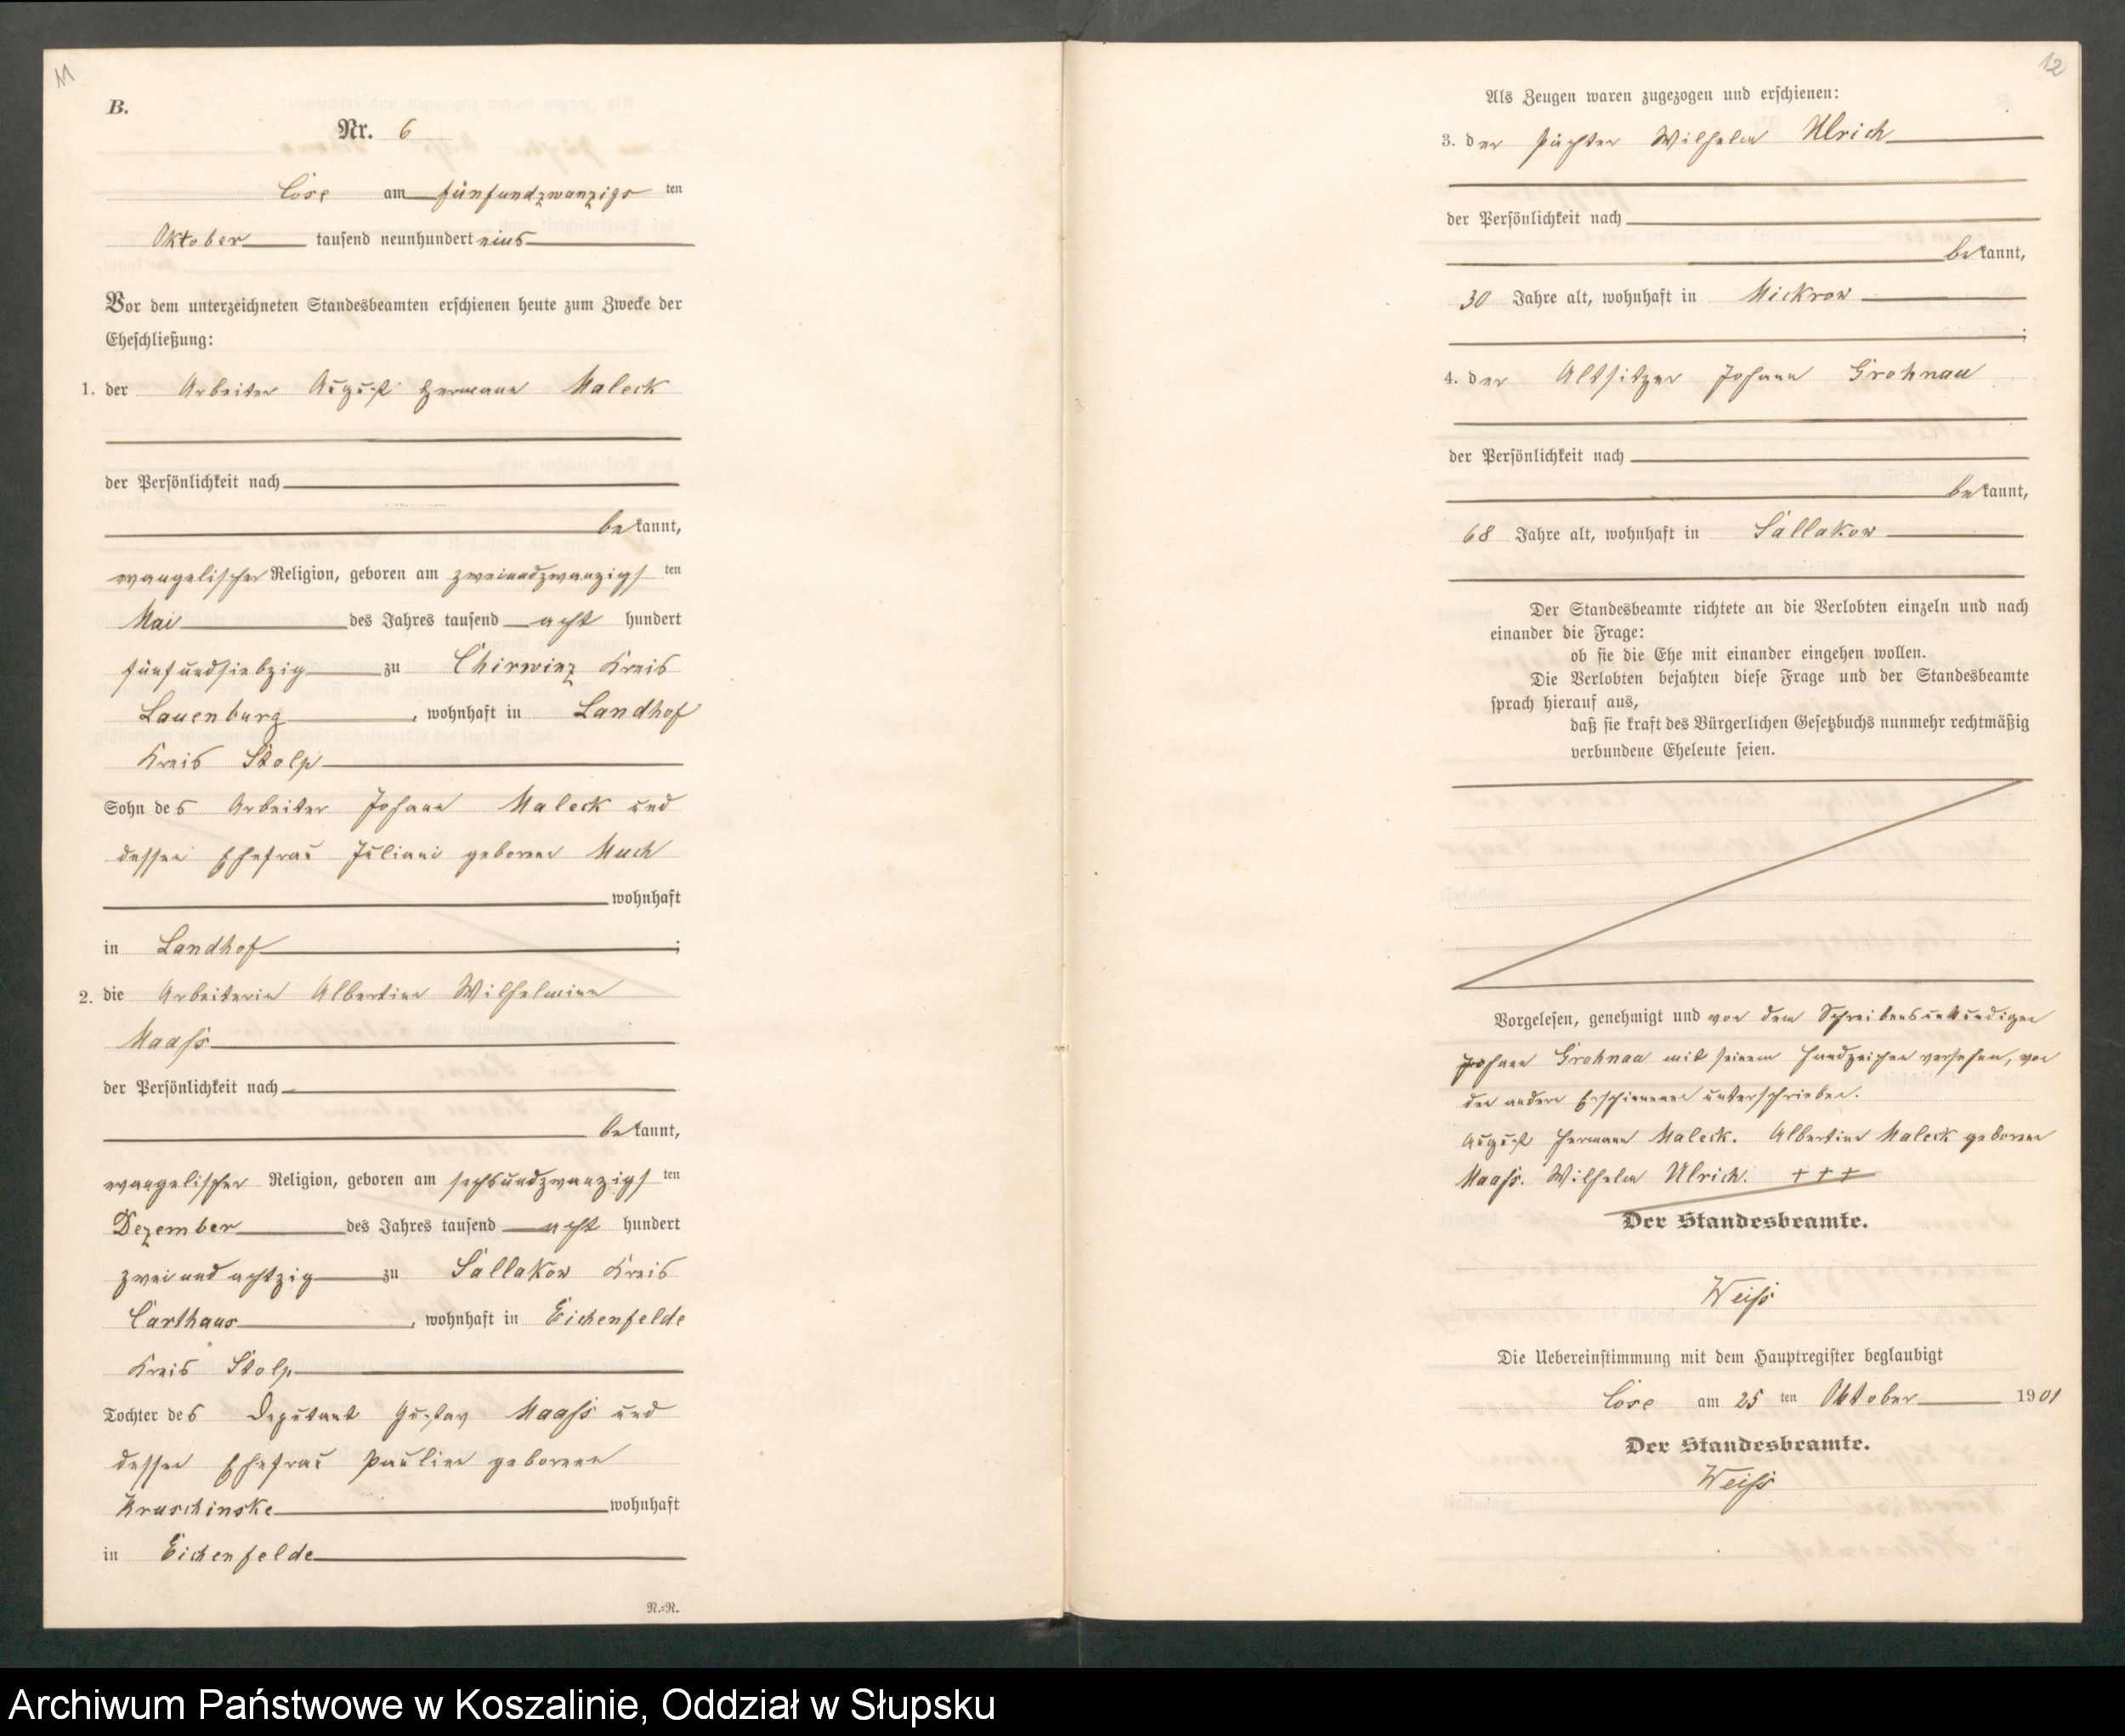 11
B.
Nr. 6
Cose am fünfundzwanzigs ten
Oktober tausend neunhundert eins
Vor dem unterzeichneten Standesbeamten erschienen heute zum Zwecke der
Eheschließung:
1. der Arbeiter August Hermann Maleck
der Persönlichkeit nach
be kannt,
evangelischer Religion, geboren am zweiundzwanzigs ten
Mai des Jahres tausend acht hundert
fünfundsiebzig zu Chirwinz Kreis
Lauenburg, wohnhaft in Landhof
Kreis Stolp
Sohn des Arbeiter Johann Maleck und
dessen Ehefrau Juliani geborene Much
wohnhaft
in Landhof ;
2. die Arbeiterin Albertine Wilhelmine
Maaß
der Persönlichkeit nach
be kannt,
evangelischer Religion, geboren am sechsundzwanzigs ten
Dezember des Jahres tausend acht hundert
zweiundachtzig zu Sallakow Kreis
Carthaus, wohnhaft in Eichenfelde
Kreis Stolp
Tochter des Deputant Gustav Maaß und
dessen Ehefrau Pauline geborene
Kruschinske wohnhaft
in Eichenfelde
N.=R.
12
Als Zeugen waren zugezogen und erschienen:
3. der Pächter Wilhelm Ulrich
der Persönlichkeit nach
be kannt,
30 Jahre alt, wohnhaft in Mickrow
;
4. der Altsitzer Johann Grohnau
der Persönlichkeit nach
be kannt,
68 Jahre alt, wohnhaft in Sallakow
Der Standesbeamte richtete an die Verlobten einzeln und nach
einander die Frage:
ob sie die Ehe mit einander eingehen wollen.
Die Verlobten bejahten diese Frage und der Standesbeamte
sprach hierauf aus,
daß sie kraft des Bürgerlichen Gesetzbuchs nunmehr rechtmäßig
verbundene Eheleute seien.
Vorgelesen, genehmigt und von dem Schreibensunkundigen
Johann Grohnau mit seinem Handzeichen versehen, von
den andern Erschienenen unterschrieben.
August Hermann Maleck. Albertine Maleck geborene
Maaß. Wilhelm Ulrich. + + +
Der Standesbeamte.
Weiß
Die Uebereinstimmung mit dem Hauptregister beglaubigt
Cose am 25 ten Oktober 1901
Der Standesbeamte.
Weiß
Archiwum Państwowe w Koszalinie, Oddział w Słupsku